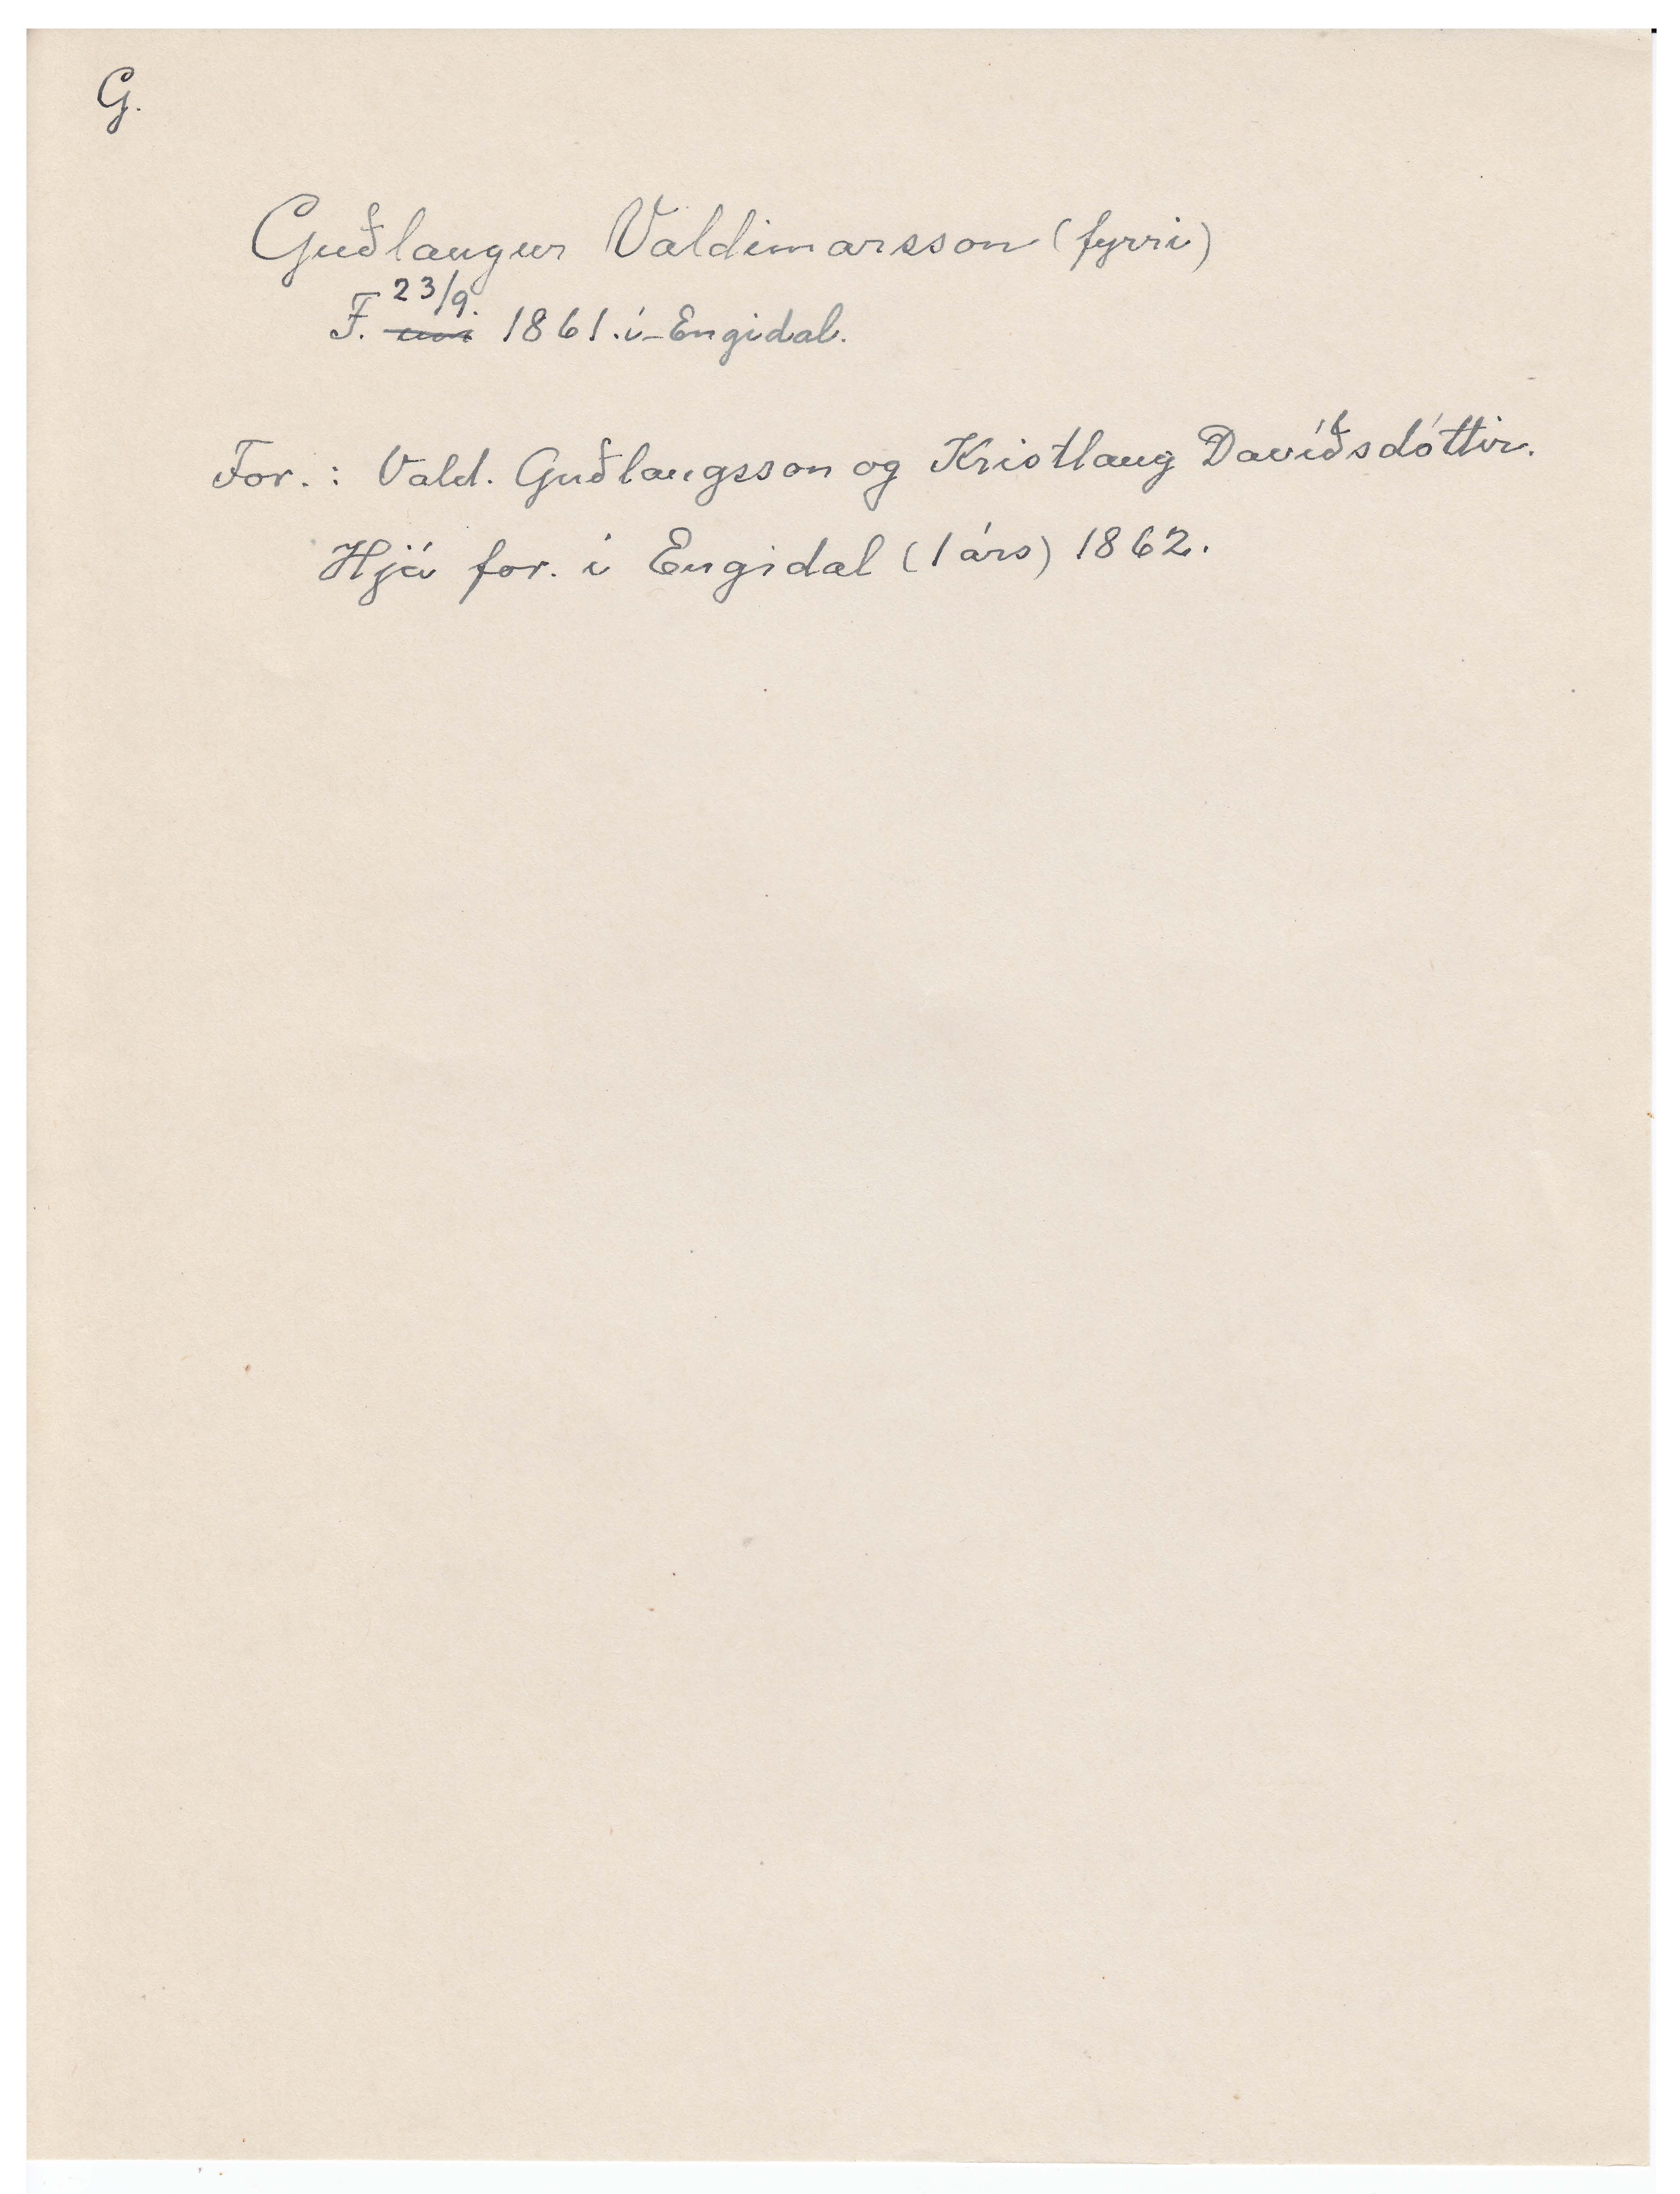 G.
Guðlaugur Valdimarsson (fyrri)
23/9.
F. um 1861. í Engidal.
For.: Vald. Guðlaugsson og Kristlaug Davíðsdóttir.
Hjá for. í Engidal (1 árs) 1862.